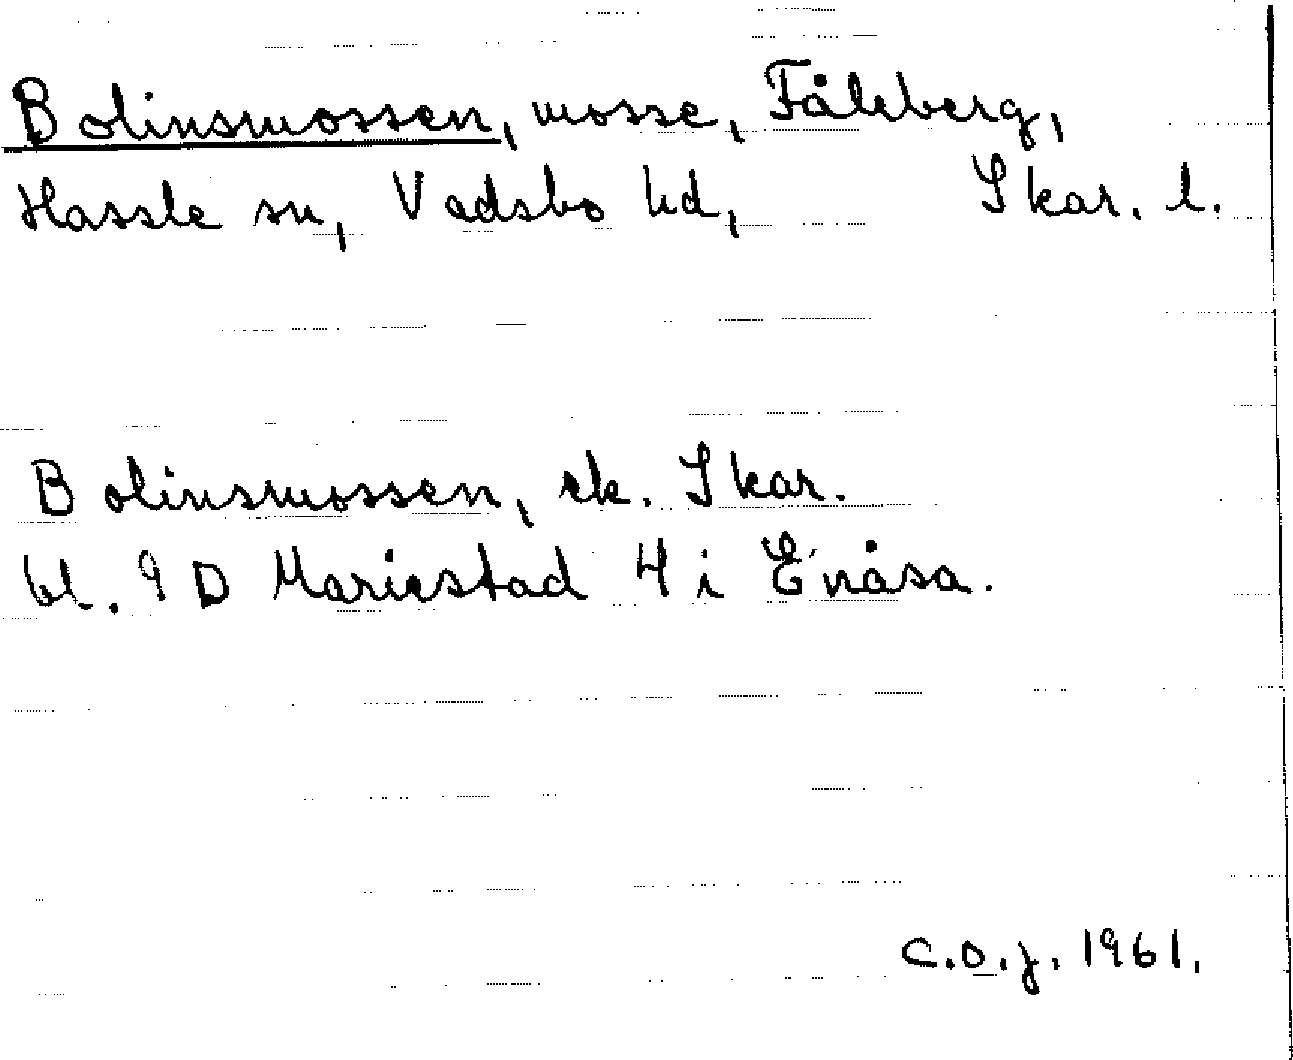 Bolinsmossen, mosse, Fåleberg,
Hassle sn, Vadsbo hd, Skar. l.
Bolinsmossen, ek. Skar.
bl. 9 D Mariestad 4 i Enåsa.
C.O.J. 1961.